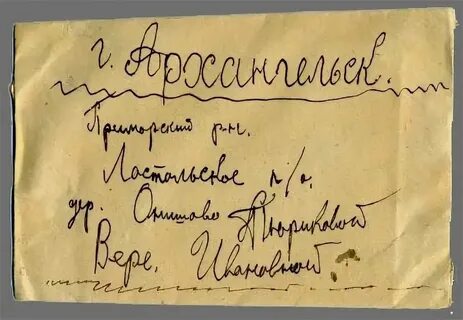 г. Архангельск.
Приморский р-н.
Ластольское п/о.
дер. Онишово Тюриковой
Вере. Ивановной.